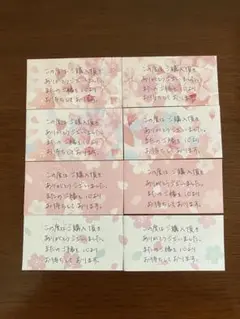 この度は ご購入頂き
ありがとうございました。
またの ご縁を 心より
お待ちしております。
この度は ご購入頂き
ありがとうございました。
またの ご縁を 心より
お待ちしております。
この度は ご購入頂き
ありがとうございました。
またの ご縁を 心より
お待ちしております。
この度は ご購入頂き
ありがとうございました。
またの ご縁を 心より
お待ちしております。
この度は ご購入頂き
ありがとうございました。
またの ご縁を 心より
お待ちしております。
この度は ご購入頂き
ありがとうございました。
またの ご縁を 心より
お待ちしております。
この度は ご購入頂き
ありがとうございました。
またの ご縁を 心より
お待ちしております。
この度は ご購入頂き
ありがとうございました。
またの ご縁を 心より
お待ちしております。